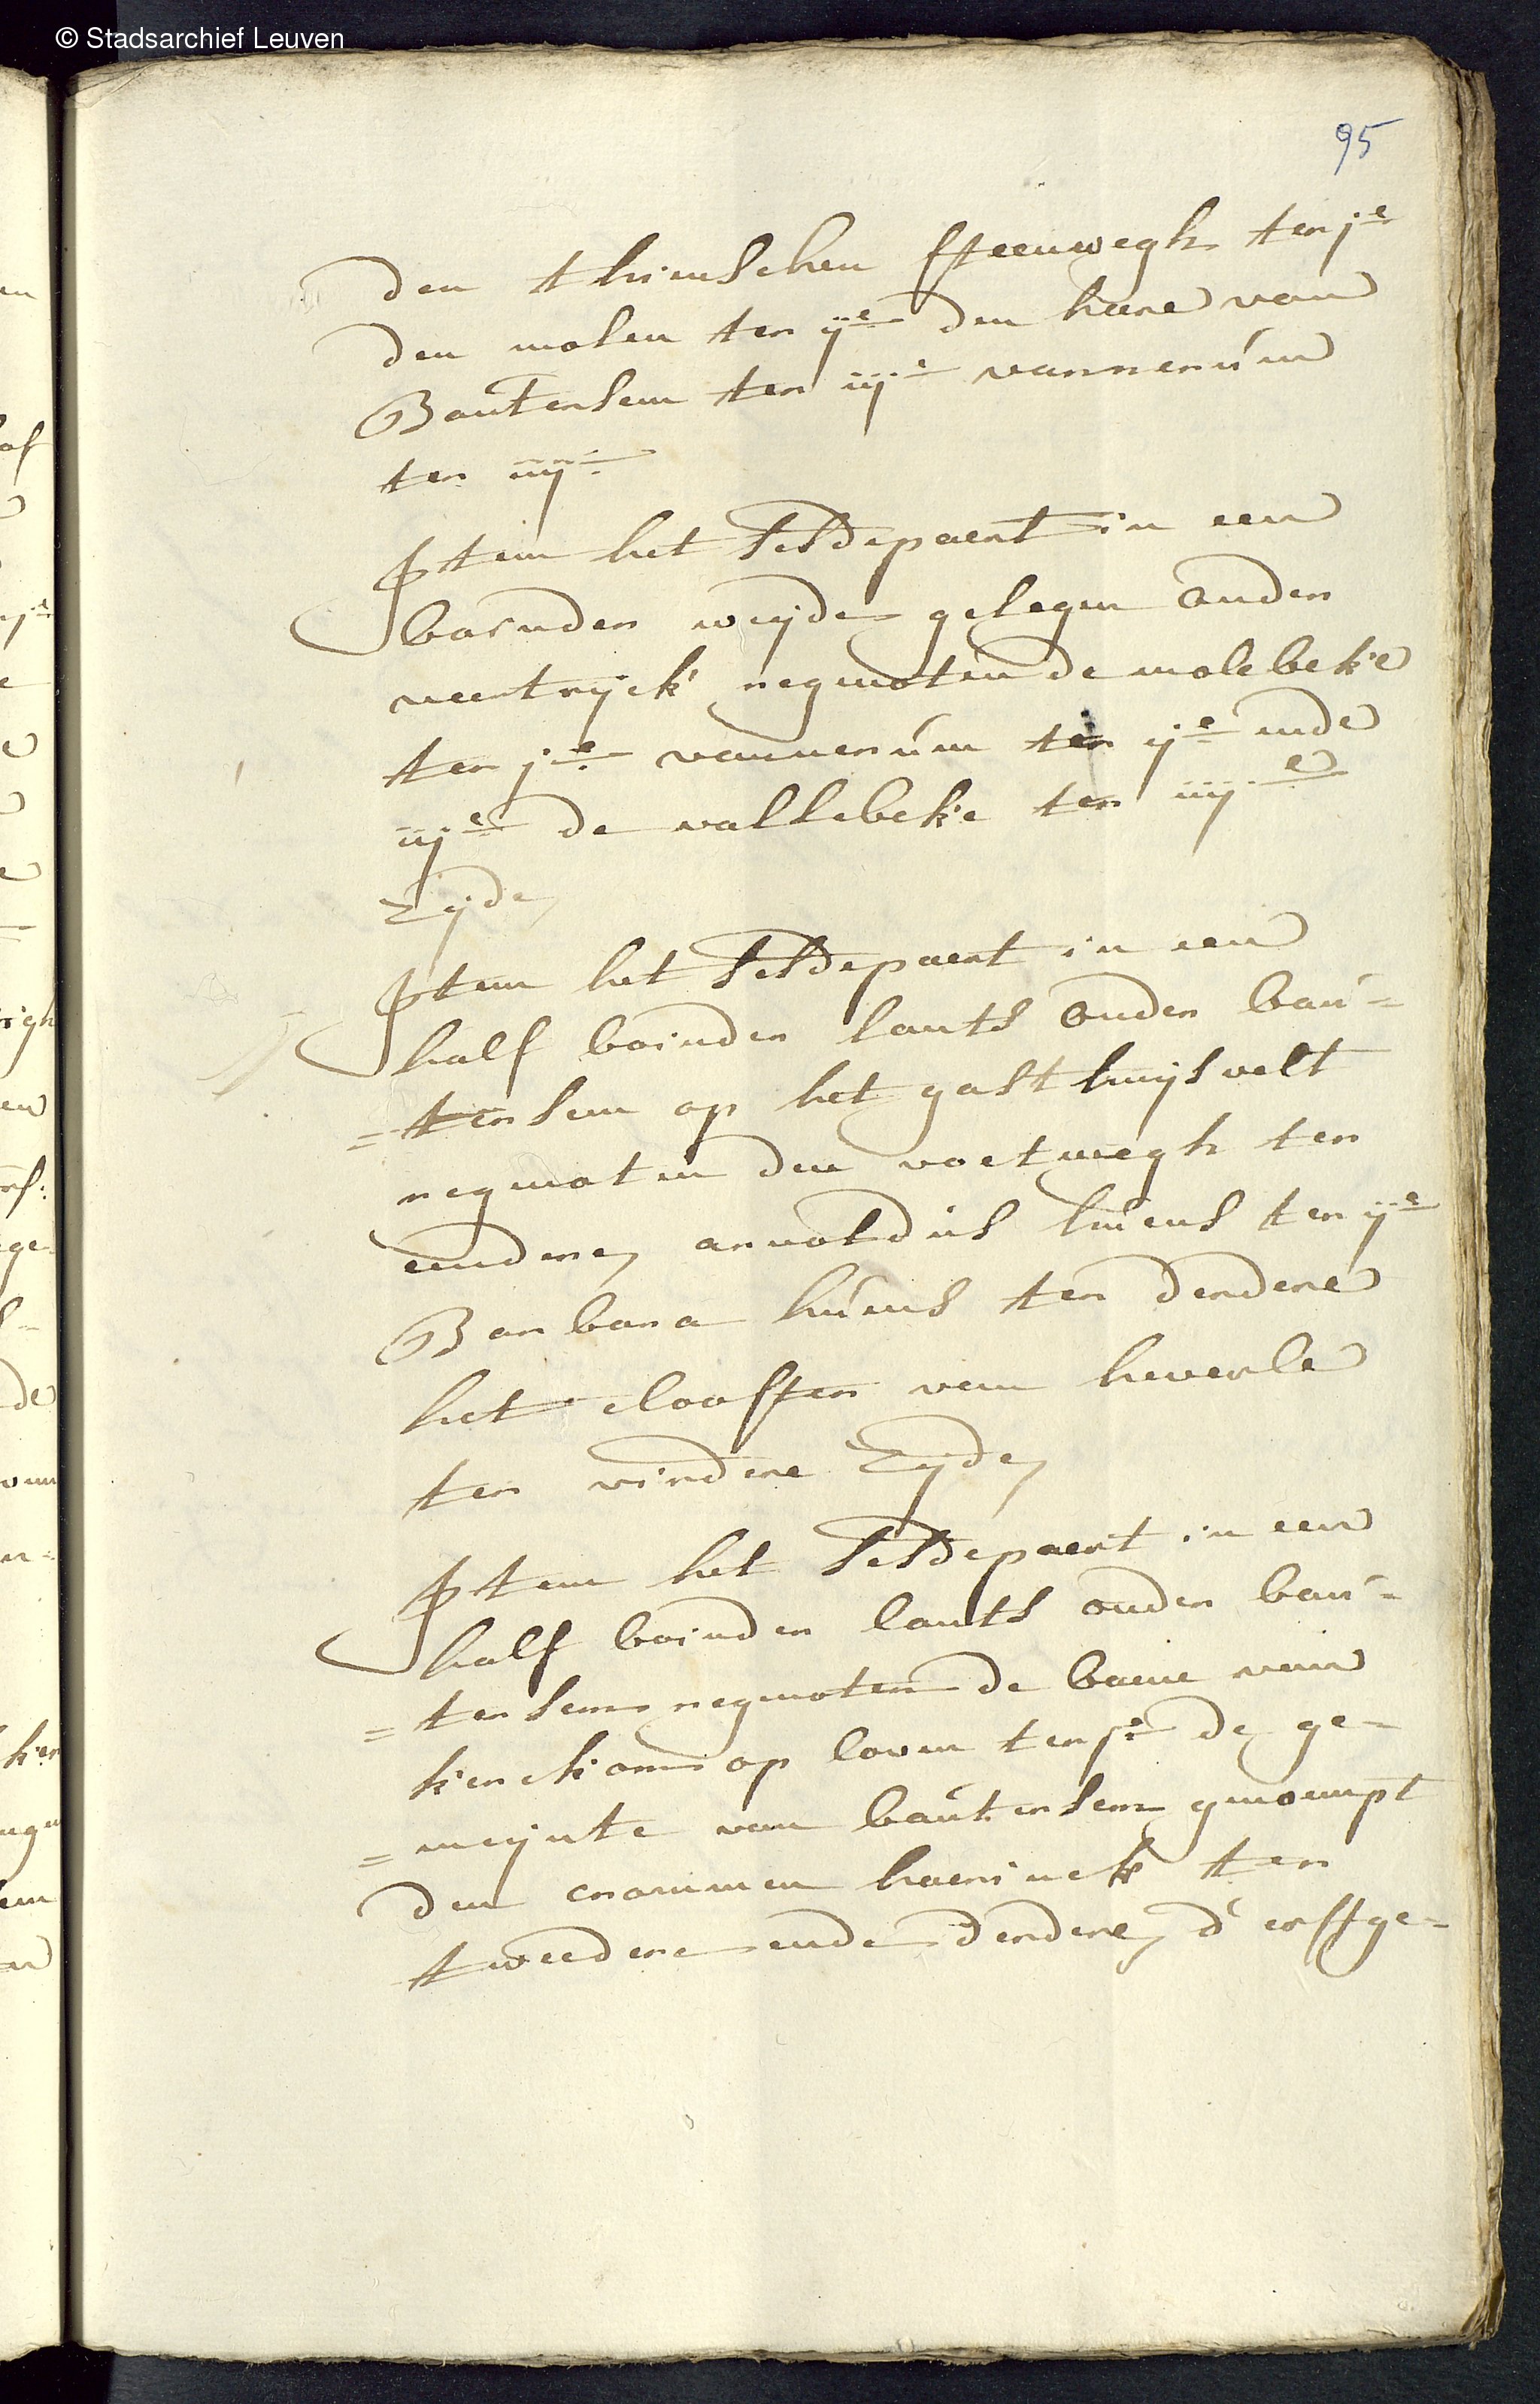 © Stadsarchief Leuven
95
den thienschen steenwegh ter je
den molen ter ije den heere van
Bautersem ter iije vannerum
ter iiije
Item het seldepaert in een
boinder weijde gelegen onder
neertrijck regenoten de molebeke
ter je vannerum ter ije ende
iije de vallebeke ter iiije
Zijde
Item het seldepaert in een
half boinder lants onder bau=
=tersem op het gasthuijsvelt
regenoten den voetwegh ter
eendere, arnoldus huens ter ije
Barbara huens ter derdere
het clooster van heverle
ter virdere Zijde
Item het seldepaert in een
half boinder lants onder bau=
=tersem regenoten de baene van
kerckom op loven ter je de ge=
=meijnte van bautersem genoempt
den crommen haerinck ter
tweedere ende derdere, d'erffge=